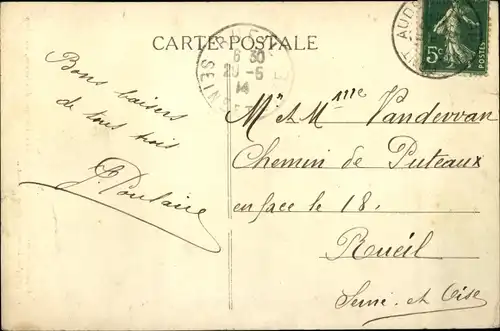 CARTE POSTALE
6 30
20 -5
14
SEINE
5c
POSTES
Bons baisers
de tous trois
J. Poulain
Mr et Mme Vandervran
Chemin de Puteaux
en face le 18.
Rueil
Seine et Oise